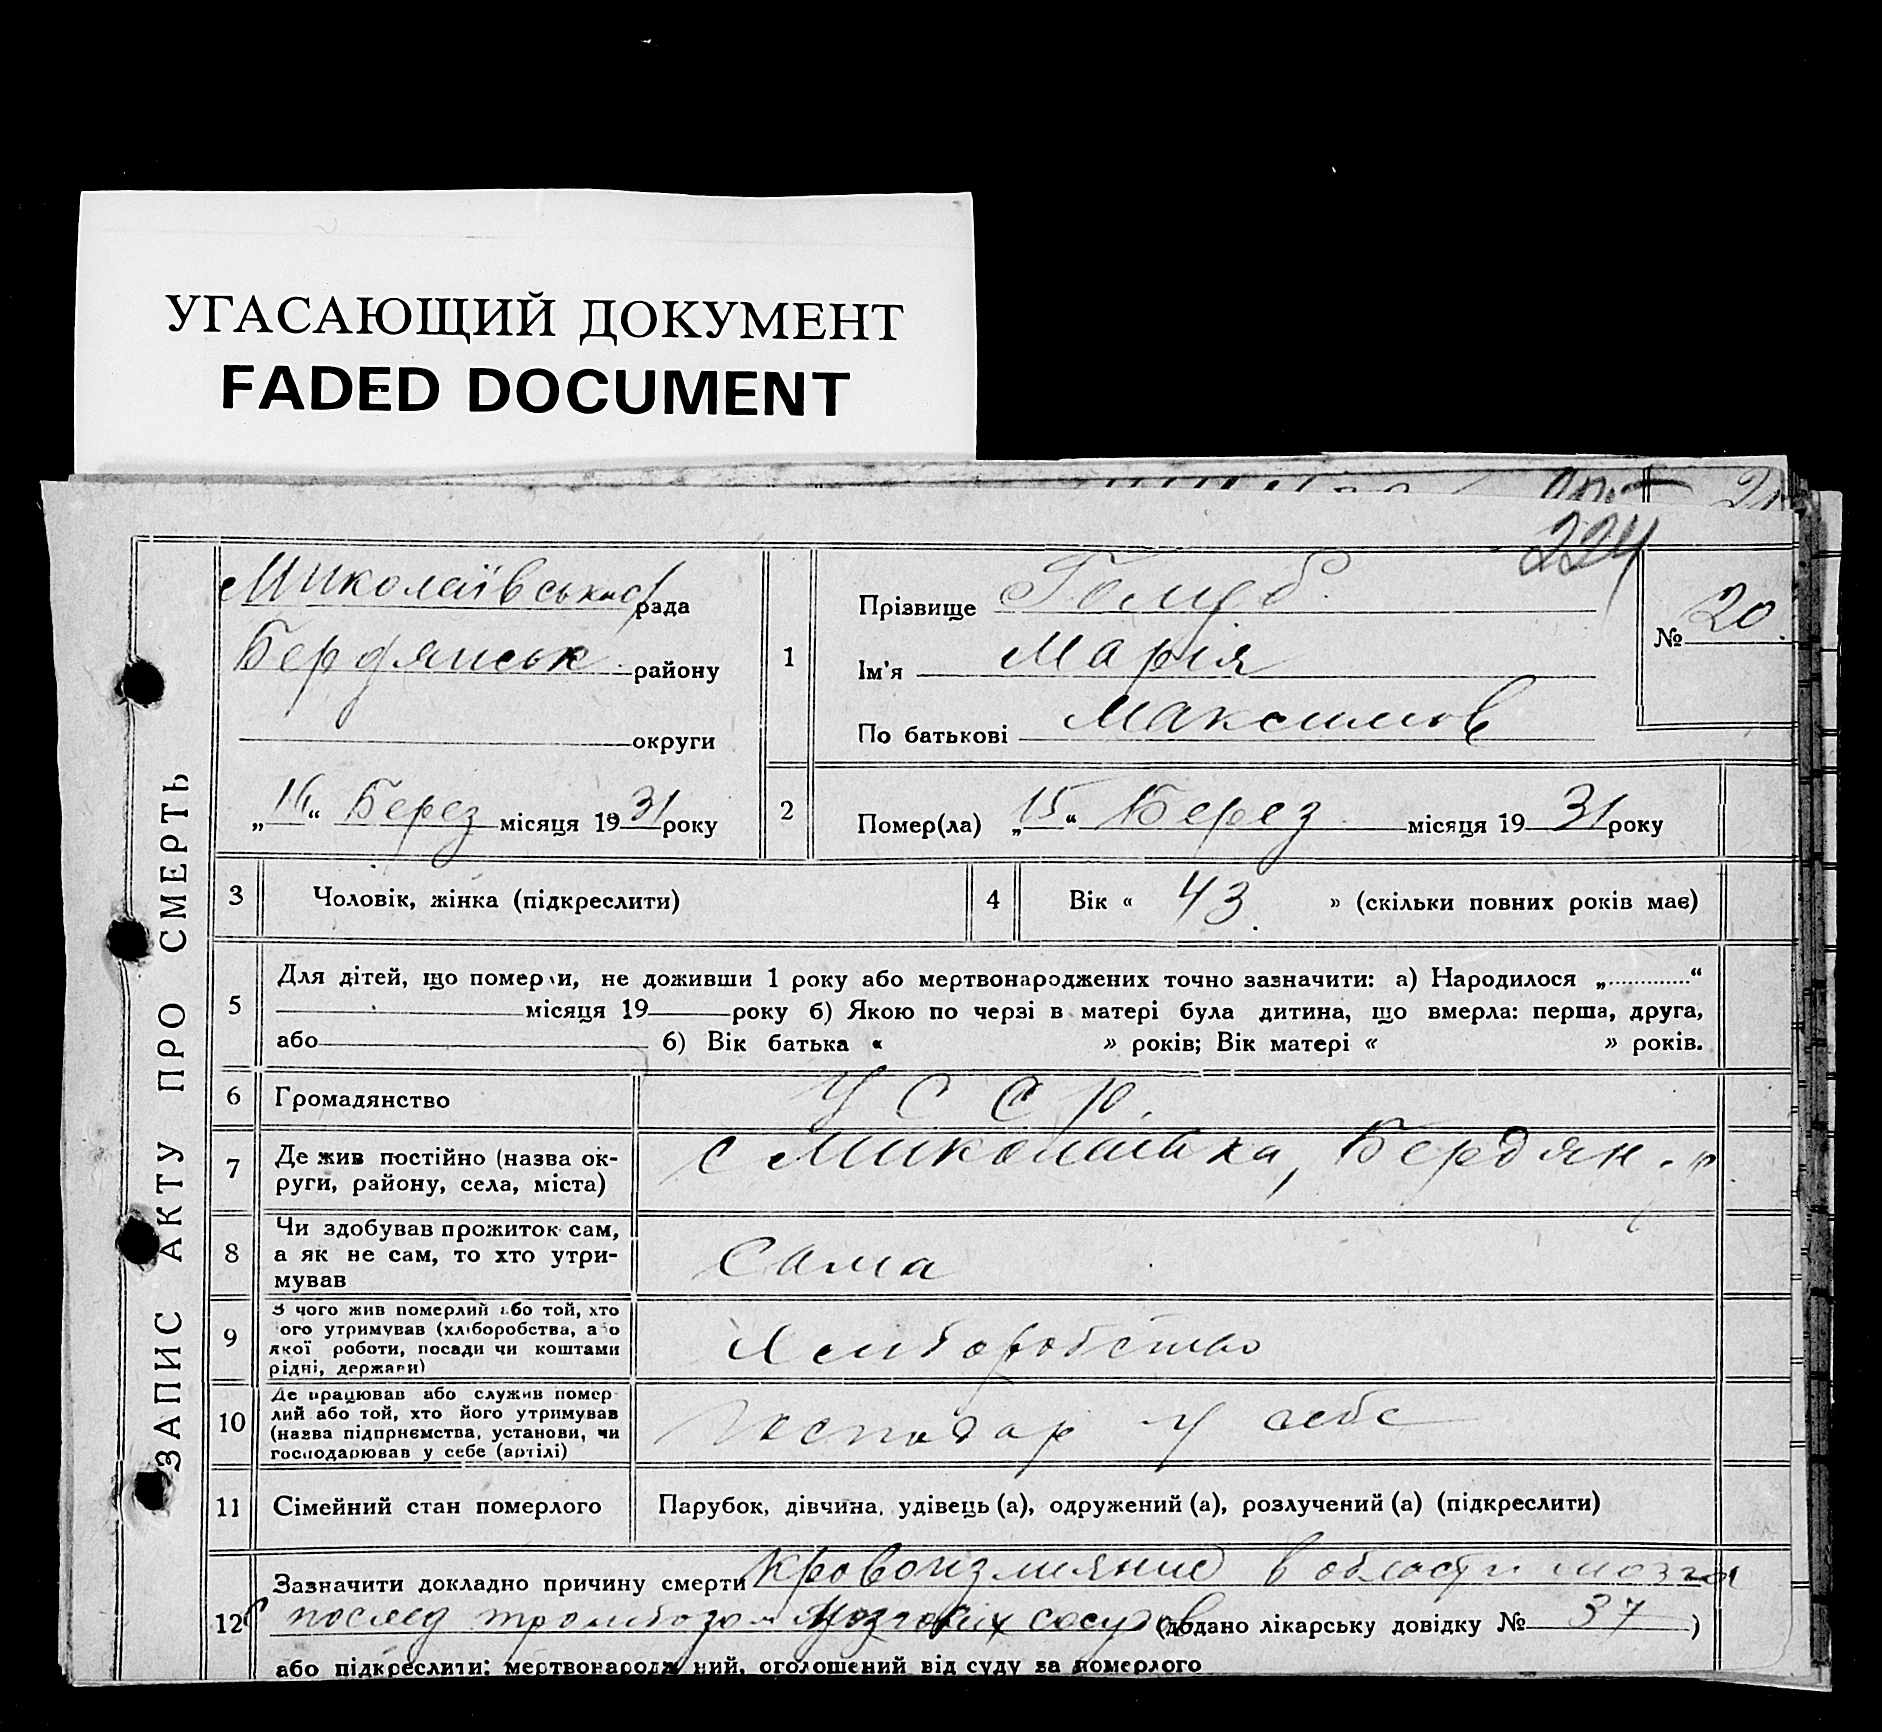 УГАСАЮЩИЙ ДОКУМЕНТ
FADED DOCUMENT
224
ЗАПИС АКТУ ПРО СМЕРТЬ
Миколаївська рада
Бердянськ району
округи
„16“ Берез місяця 1931 року
1
Прізвище Голуб
Ім'я Марія
По батькові Максимов
№ 20.
2
Помер(ла) „15“ Берез місяця 1931 року
3 Чоловік, жінка (підкреслити)
4 Вік « 43. » (скільки повних років має)
5 Для дітей, що померли, не доживши 1 року або мертвонароджених точно зазначити: а) Народилося „ “
місяця 19 року б) Якою по черзі в матері була дитина, що вмерла: перша, друга,
або б) Вік батька « » років; Вік матері « » років.
6 Громадянство УССР.
7 Де жив постійно (назва ок-
руги, району, села, міста)
с Миколаївка, Бердян. р
8 Чи здобував прожиток сам,
а як не сам, то хто утри-
мував
сама
9 З чого жив померлий або той, хто
ого утримував (хліборобства, або
якої роботи, посади чи коштами
рідні, держави)
Хліборобство
10 Де працював або служив помер
лий або той, хто його утримував
(назва підприємства, установи, чи
господарював у себе (артілі)
Господар у себе
11 Сімейний стан померлого Парубок, дівчина, удівець (а), одружений (а), розлучений (а) (підкреслити)
12 Зазначити докладно причину смерти Кровоизлияние в области мозга
послед тромбозом мозгових сосудов (додано лікарську довідку № 37)
або підкреслити: мертвонароджений, оголошений від суду за померлого